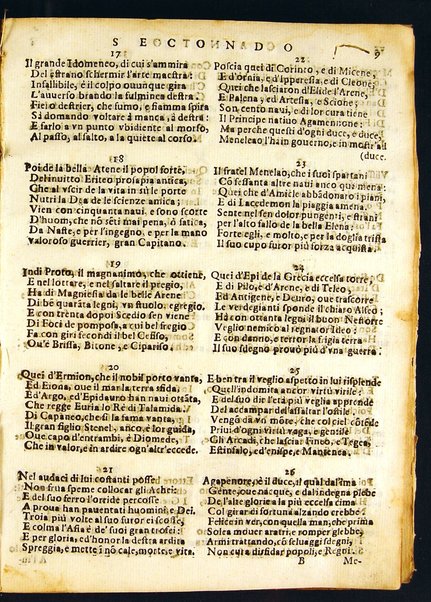 SECONDO
9
17
Il grande Idomeneo, di cui s'ammira
Del estrano schermir l'arte maestra:
Infallibile, è il colpo ouunque gira
L'auuerso brando la fulminea destra:
Fiero destrier, che fumo, e fiamma spira
Sà domando voltare à manca, à destra:
E farlo a vn punto vbidiente al morso,
Al passo, al salto, a la quiete al corso.
18
Poi de la bella Atene il popol forte,
Del inuitto Eriteo proia antica,
Che al vscir de la vita in sù le porte
Nutrì la Dea de le scienze amica;
Vien con cinquanta naui, e sono scorte
D'huom, che nò teme mai pena, ò fatica,
Da Naste, e per l'ingegno, e per la mano
valoroso guerrier, gran Capitano.
19
Indi Proto, il magnanimo, che ottiene,
E nel lottare, e nel saltare il pregio,
Ha di Magniesia da le belle Arene
Di bẽ quarãta legni, vn stuolo egregio.
E con trenta dopoi Scedio sen viene
Di Foci de pomposa, a cui bel fregio
Fa con giri secondi il bel Cesisso,
Ou'è Brissa, Bitone, e Ciparisso.
20
Quei d'Ermion, che il nobil porto vanta,
Ed Eiona, oue il man la terra sfida;
Ed'Argo, ed'Epidauro han naui ottãta,
Che regge Euria lo Rè di Talamida.
Di Capaneo, che sì la fama vanta,
Il gran figlio Stenel, anco, è lor guida,
Que capo d'entrambi, è Diomede,
Che in valore, e in ardire ogn'altr'eccede.
21
Nel audaci di lui costanti posse:
Non frusa speme collocar gli Achei:
E del suo ferro l'oride percosse
A proua han pauentati huomini, e Dei.
Troia più volte al suo furor si scosse,
E colma l'Asia è de' suoi gran trosei:
E per gloria, ed'honor la destra ardita
Spreggia, e mette i nõ cale, morte, e vita.
22
Poscia quei di Corinto, e di Micene,
E d'ornia, e d'Ipperesia, e di Cleone,
Quei che lasciaron d'Elide l'Arene,
E Palena, ed Artesia, e Scione;
Son cento naui, e di lor cura tiene
Il Principe natiuo Agamennone;
Ma perche questi d'ogni duce, e duce,
Menelao l'hain gouerno, e in mostra adduce.
23
Il fratel Menelao, che i suoi spartani
Cõ sessanta altre naui anco quì mena:
Quei che d'Amicle abbãdonaro i piani,
E di Lacedemon la piaggia amena.
Sente nel sen dolor pungenti, e strani
per l'alto fallo de la bella Elena;
Forte egli, e molto, per la doglia trista
Il suo cupo furor piu forza acquista.
24
Quei d'Epi de la Grecia eccelsa torre,
E di Pilo, e d'Arene, e di Teleo,
Ed Antigène, e Deuro, oue trascorre
Le verdegianti sponde il chiaro Alseo;
Hà con ottanta legni il buon Nestorre
Veglio nemico al regnator Ideo:
E con danno, e terror la frigia terra
Il suo senno prouò più d'vna guerra.
25
E ben tra il veglio aspetto in lui risplende
Quell'indomita ancor virtù virile:
E del suo dir l'erà più l'aggrauà offende
Del accampar dell'assalto l'ostile.
Vengõ da vn mõre, che col ciel cõtẽde
Priui d'ogni virtù vaga, e gentile
Gli Arcadi, che lascia Fineo, e Tegea,
Estinsalo, ed'enispe, e Mantenea.
26
Agapenore, è il duce, il qual dal'ima
Gente, oue nacque, e dal indegna plebe
De l'alte gloria a la più eccelsa cima
Col girar di fortuna alzando crebbe:
Felice in ver, con quella man, che prima
Solea mouer aratri, e romper glebbe,
Armi trattando, cõ siluaggi sdegni,
Non cura disfidar popoli, e Regni.
B Me-